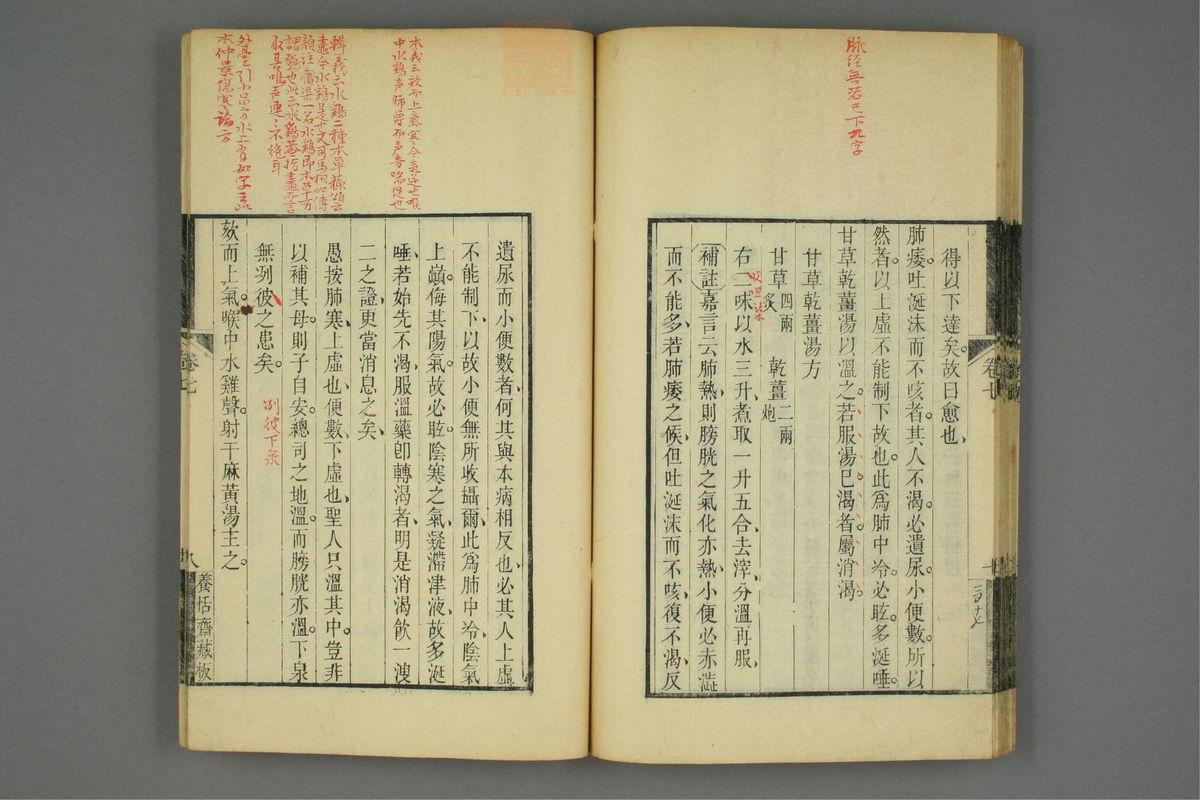 脉經無若已下九字
得以下達矣故曰愈也
肺痿吐涎沫而不咳者其人不渴必遺尿小便數所以
然者以上虛不能制下故也此爲肺中冷必眩多涎唾
甘草乾薑湯以溫之若服湯已渴者屬消渴
甘草乾薑湯方
甘草四兩炙 乾薑二兩炮
右二味以水三升煮取一升五合去滓分溫再服
補註嘉言云肺熱則膀胱之氣化亦熱小便必赤澁
而不能多若肺痿之候但吐涎沫而不咳復不渴反
卷七
遺尿而小便數者何其與本病相反也必其人上虛
不能制下以故小便無所收攝爾此爲肺中冷陰氣
上巔侮其陽氣故必眩陰寒之氣凝滯津液故多涎
唾若始先不渴服溫藥卽轉渴者明是消渴飲一溲
二之證更當消息之矣
愚按肺寒上虛也便數下虛也聖人只溫其中豈非
以補其母則子自安總司之地溫而膀胱亦溫下泉
無冽彼之患矣
冽彼下泉
欬而上氣喉中水雞聲射干麻黃湯主之
本義云欬而上氣寒
中水鷄声
輯義云水鷄二種本草蘓頌云
鼃今水鷄是
取其鳴声連々不絶耳
外臺引小品
本仲景傷寒論方
卷七
八
養恬齋藏板